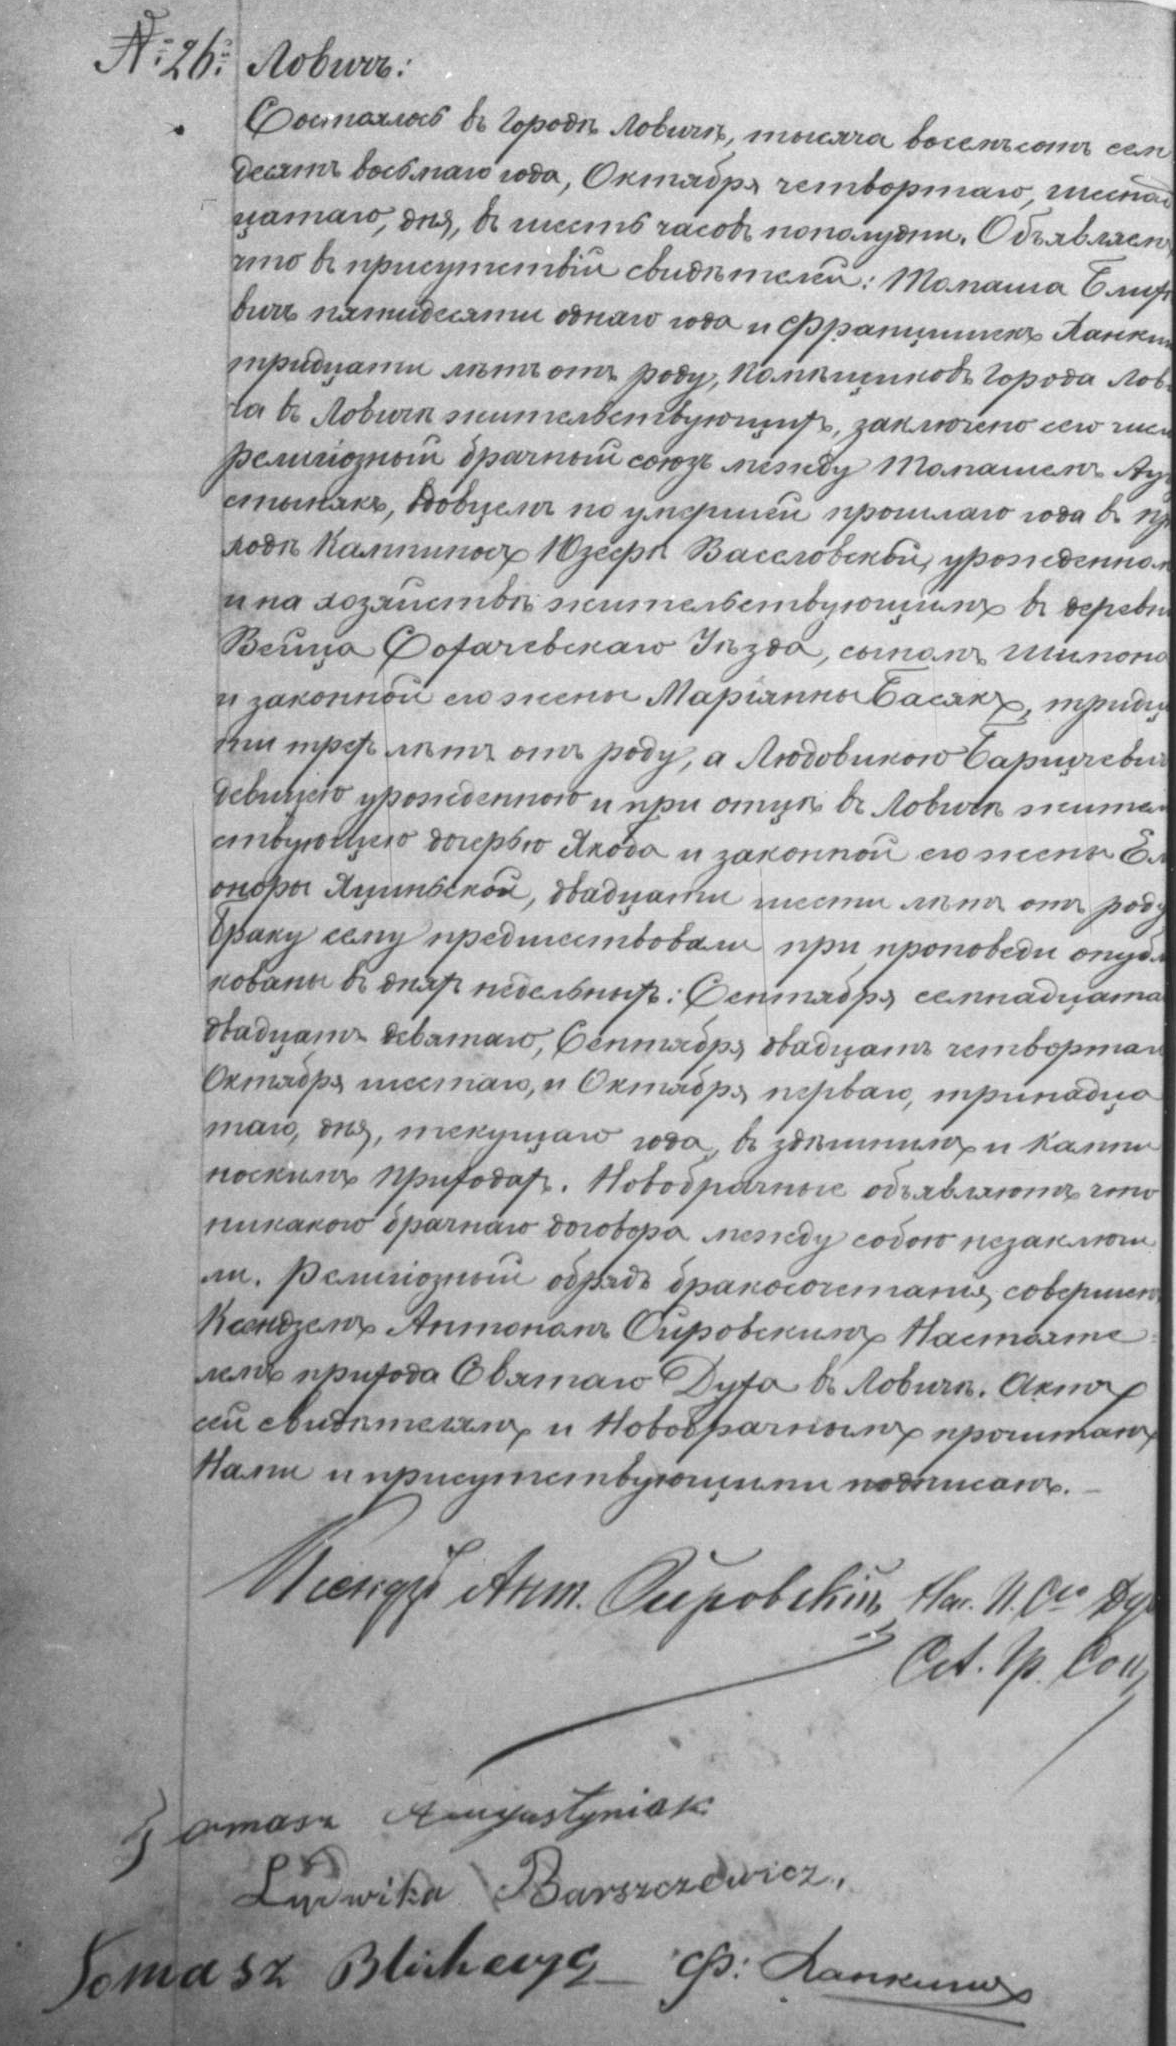 № 26: Ловичъ:
Состоялось въ городѣ Ловичѣ, тысяча восемьсотъ сем
десятъ восьмаго года, Октября четвертаго, шестнад
цатаго, дня, въ шесть часовъ пополудни. Объявляемъ
что въ присутствіи свидѣтелей: Томаша Блихе
вичъ пятидесяти однаго года и Францишекъ Ланки
тридцати лѣтъ отъ роду, помѣщиковъ города Лов
ча въ Ловичѣ жительствующихъ, заключено сего числ
религіозный брачный союзъ между Томашемъ Ауг
стынякъ, вдовцемъ по умершей прошлаго года въ пр
ходѣ Кампиносъ Юзефѣ Васеловской, урожденном
и на хозяйствѣ жительствующимъ въ деревн
Вейца Сохачевскаго Уѣзда, сыномъ Шимона
и законной его жены Маріянны Басякъ, тридца
ти трехъ лѣтъ отъ роду, а Людовикою Барщевич
девицею урожденною и при отцѣ въ Ловичѣ жител
ствующею дочерью Якоба и законной его жены Ел
оноры Яциньской, двадцати шести лѣтъ отъ роду
Браку сему предшествовали при проповеди опубл
кованы въ дняхъ недельныхъ: Сентября семнадцата
двадцать девятаго, Сентября двадцать четвертаго
Октября шестаго, и Октября перваго, тринадца
таго, дня, текущаго года, въ здѣшнимъ и Кампи
носкимъ приходахъ. Новобрачные объявляютъ что
никакого брачнаго договора между собою незаключи
ли. Религіозный обрядъ бракосочетанія, совершенъ
Ксендземъ Антономъ Оировскимъ Настояте
лемъ прихода Святаго Духа въ Ловичѣ. Актъ
сей свидѣтелямъ и Новобрачнымъ прочитанъ
Нами и присутствующими подписанъ.
Ксендзъ Ант. Оировскій, Нас. П. Сго Дух
Сод. Гр. Сос
Tomasz Augustyniak
Ludwika Barszczewicz.
Tomasz Blichewyc Ф: Ланкиш